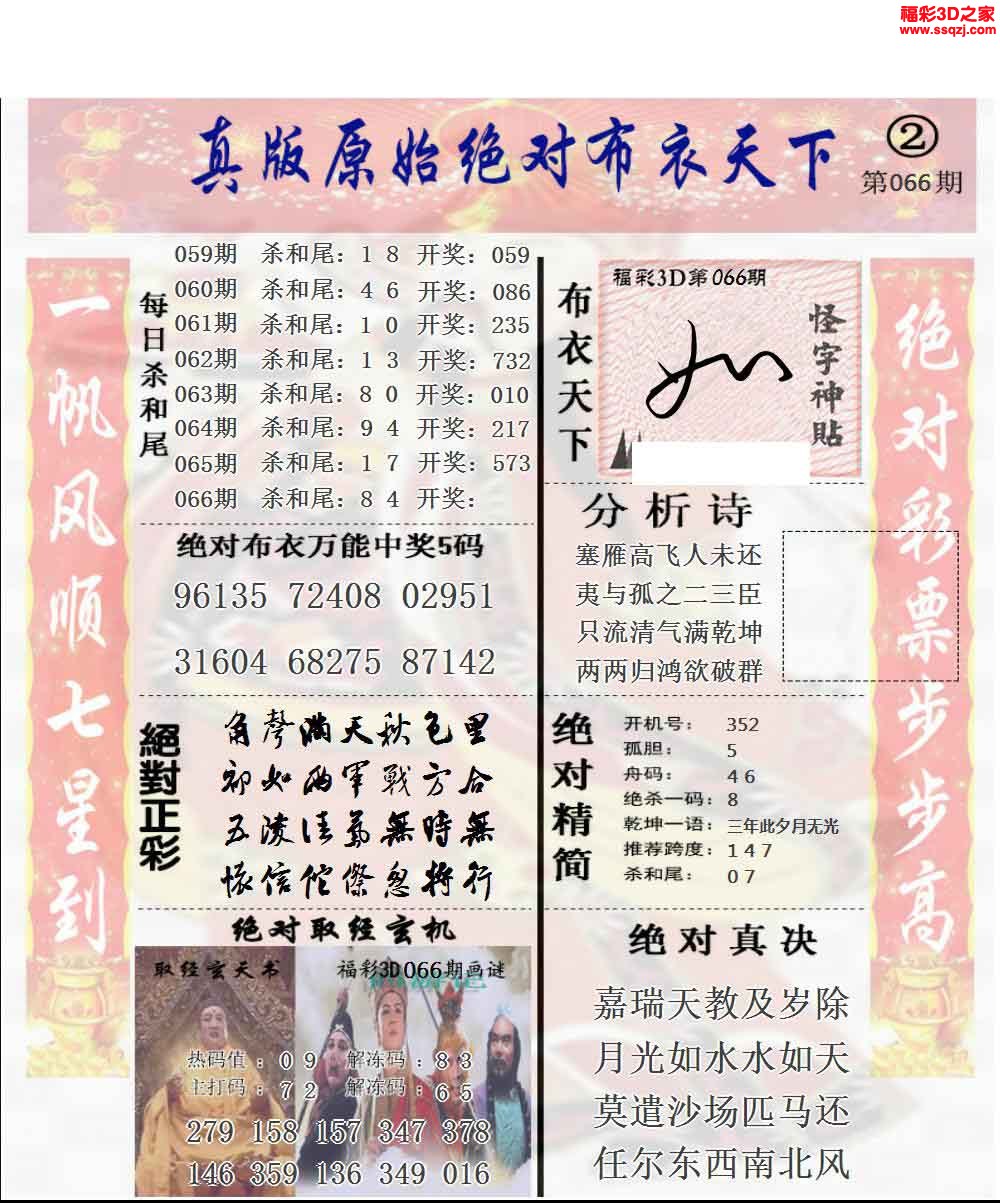 福彩3D之家
www.ssqzj.com
真版原始绝对布衣天下
②
第066期
一帆风顺七星到
每日杀和尾
059期 杀和尾：1 8 开奖：059
060期 杀和尾：4 6 开奖：086
061期 杀和尾：1 0 开奖：235
062期 杀和尾：1 3 开奖：732
063期 杀和尾：8 0 开奖：010
064期 杀和尾：9 4 开奖：217
065期 杀和尾：1 7 开奖：573
066期 杀和尾：8 4 开奖：
绝对布衣万能中奖5码
96135 72408 02951
31604 68275 87142
絕對正彩
角聲滿天秋色里
却如两軍戰方合
五陵佳氣無時無
恢信佗傺忽将行
绝对取经玄机
取经玄天书
福彩3D066期画谜
热码值：0 9 解冻码：8 3
主打码：7 2 解冻码：6 5
279 158 157 347 378
146 359 136 349 016
布衣天下
福彩3D第066期
怪字神貼
分析诗
塞雁高飞人未还
夷与孤之二三臣
只流清气满乾坤
两两归鸿欲破群
绝对精简
开机号： 352
孤胆： 5
舟码： 4 6
绝杀一码：8
乾坤一语：三年此夕月无光
推荐跨度：1 4 7
杀和尾： 0 7
绝对真决
嘉瑞天教及岁除
月光如水水如天
莫遣沙场匹马还
任尔东西南北风
绝对彩票步步高